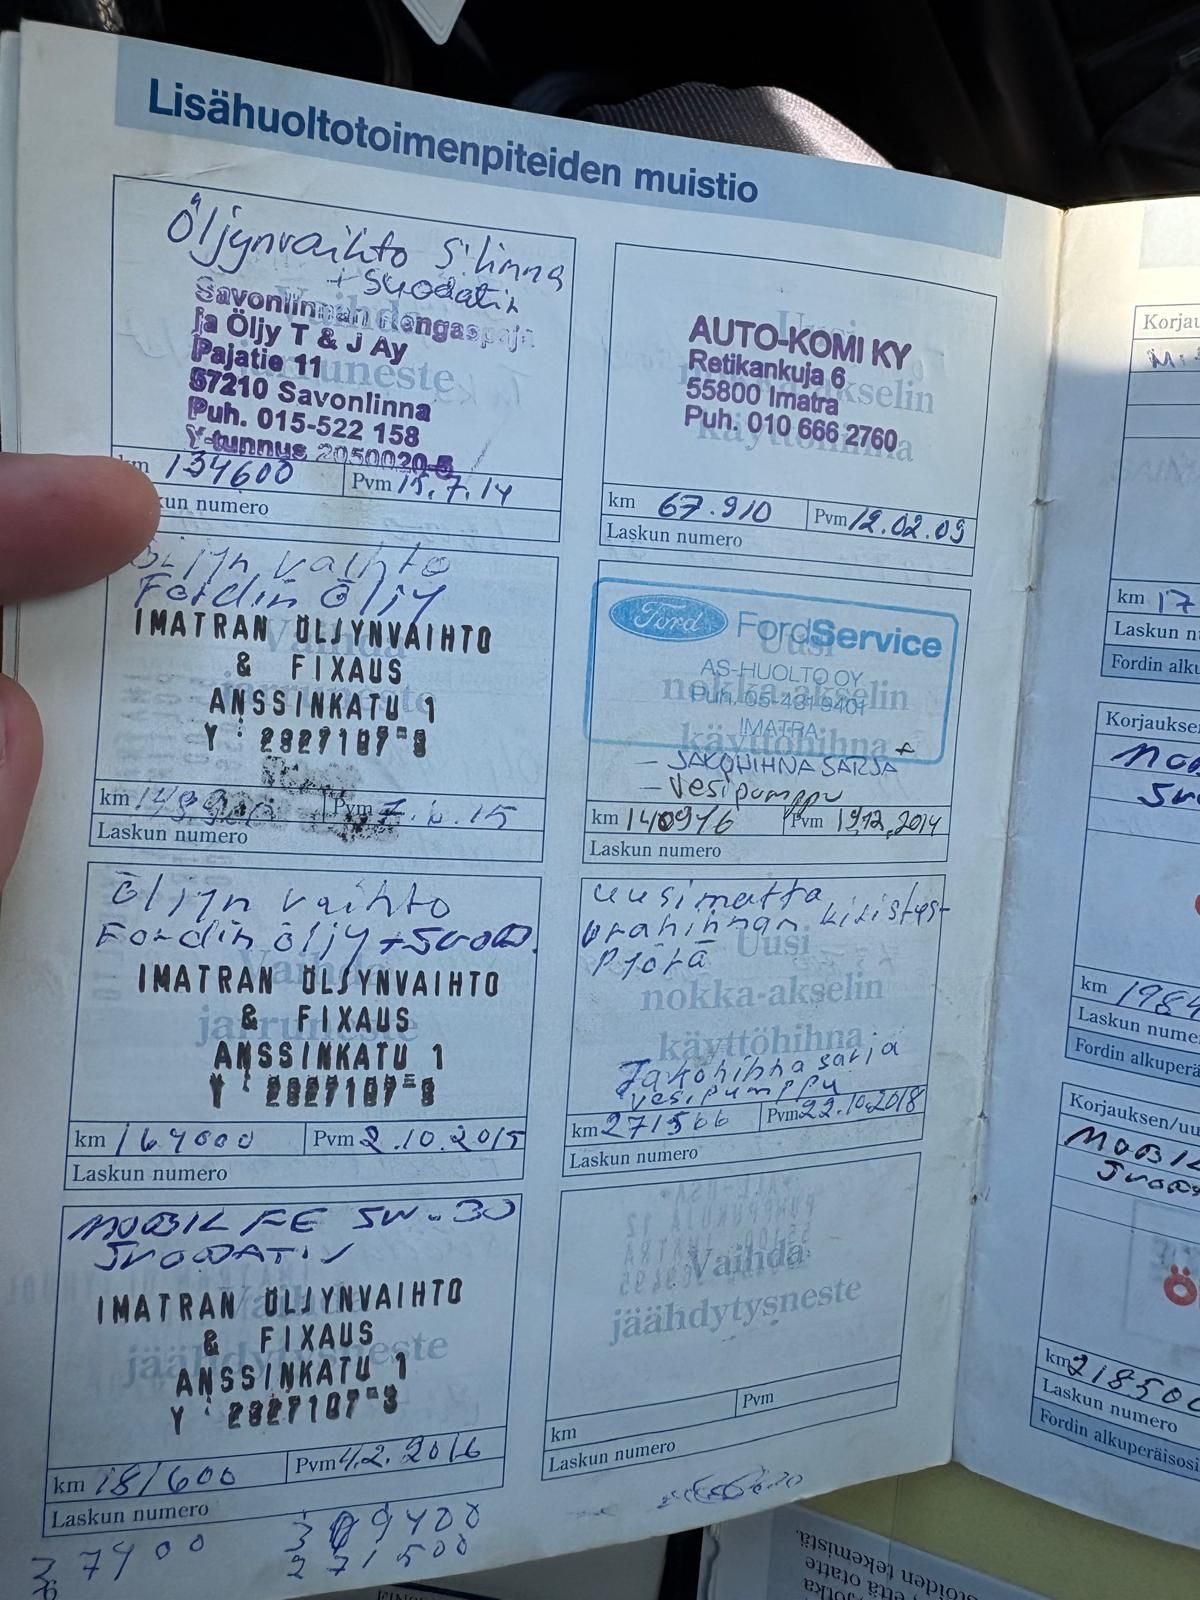 Lisähuoltotoimenpiteiden muistio
Öljynvaihto S:linna
+ suodatin
Savonlinnan Rengaspaja
ja Öljy T & J Ay
Pajatie 11
57210 Savonlinna
Puh. 015-522 158
Y-tunnus 2050020-5
km 134600 Pvm 15.7.14
kun numero
Öljyn vaihto
Fordin öljy
IMATRAN ÖLJYNVAIHTO
& FIXAUS
ANSSINKATU 1
Y
km Pvm 7.6.15
Laskun numero
Öljyn vaihto
Fordin öljy + suod.
Vaihda
jarruneste
IMATRAN ÖLJYNVAIHTO
& FIXAUS
ANSSINKATU 1
Y
km 164000 Pvm 2.10.2015
Laskun numero
MOBIL FE 5W-30
SUODATIN
jäähdytysneste
IMATRAN ÖLJYNVAIHTO
& FIXAUS
ANSSINKATU 1
Y
km 181600 Pvm 4.2.2016
Laskun numero
7400
271500
Uusi
nokka-akselin
käyttöhihna
AUTO-KOMI KY
Retikankuja 6
55800 Imatra
Puh. 010 666 2760
km 67.910 Pvm 12.02.09
Laskun numero
Ford FordService
AS-HUOLTO OY
Puh. 05-431 9401
IMATRA
Uusi
nokka-akselin
käyttöhihna +
- JAKOHIHNA SARJA
- Vesipumppu
km 140946 Pvm 19.12.2014
Laskun numero
uusimatta
urahihnan kiristys-
pyörä
Uusi
nokka-akselin
käyttöhihna
Jakohihna sarja
vesipumppu
km 271566 Pvm 22.10.2018
Laskun numero
Vaihda
jäähdytysneste
km Pvm
Laskun numero
Korjau
km 17
Laskun n
Fordin alku
Korjauksen
km 1984
Laskun nume
Fordin alkuperä
Korjauksen/uu
MOBIL
km 218500
Laskun numero
Fordin alkuperäisosi
jotka
että otatte
töiden tekemistä.